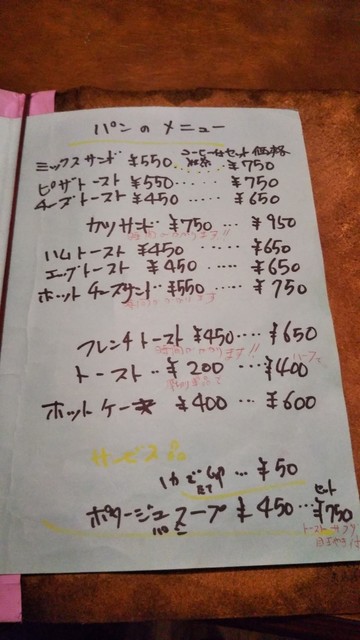 パンのメニュー
コーヒー付セット価格
ミックスサンド ¥550 ..... ¥750
ピザトースト ¥550 ..... ¥750
チーズトースト ¥450 ..... ¥650
カツサンド ¥750 ... ¥950
時間かかります!!
ハムトースト ¥450 ..... ¥650
エッグトースト ¥450 ..... ¥650
ホットチーズサンド ¥550 ... ¥750
フレンチトースト ¥450 ... ¥650
時間かかります!!
トースト .. ¥200 ... ¥400
ホットケーキ ¥400 ... ¥600
サービス品
ゆでたまご ... ¥50
セット
ポタージュスープ ¥450 ... ¥750